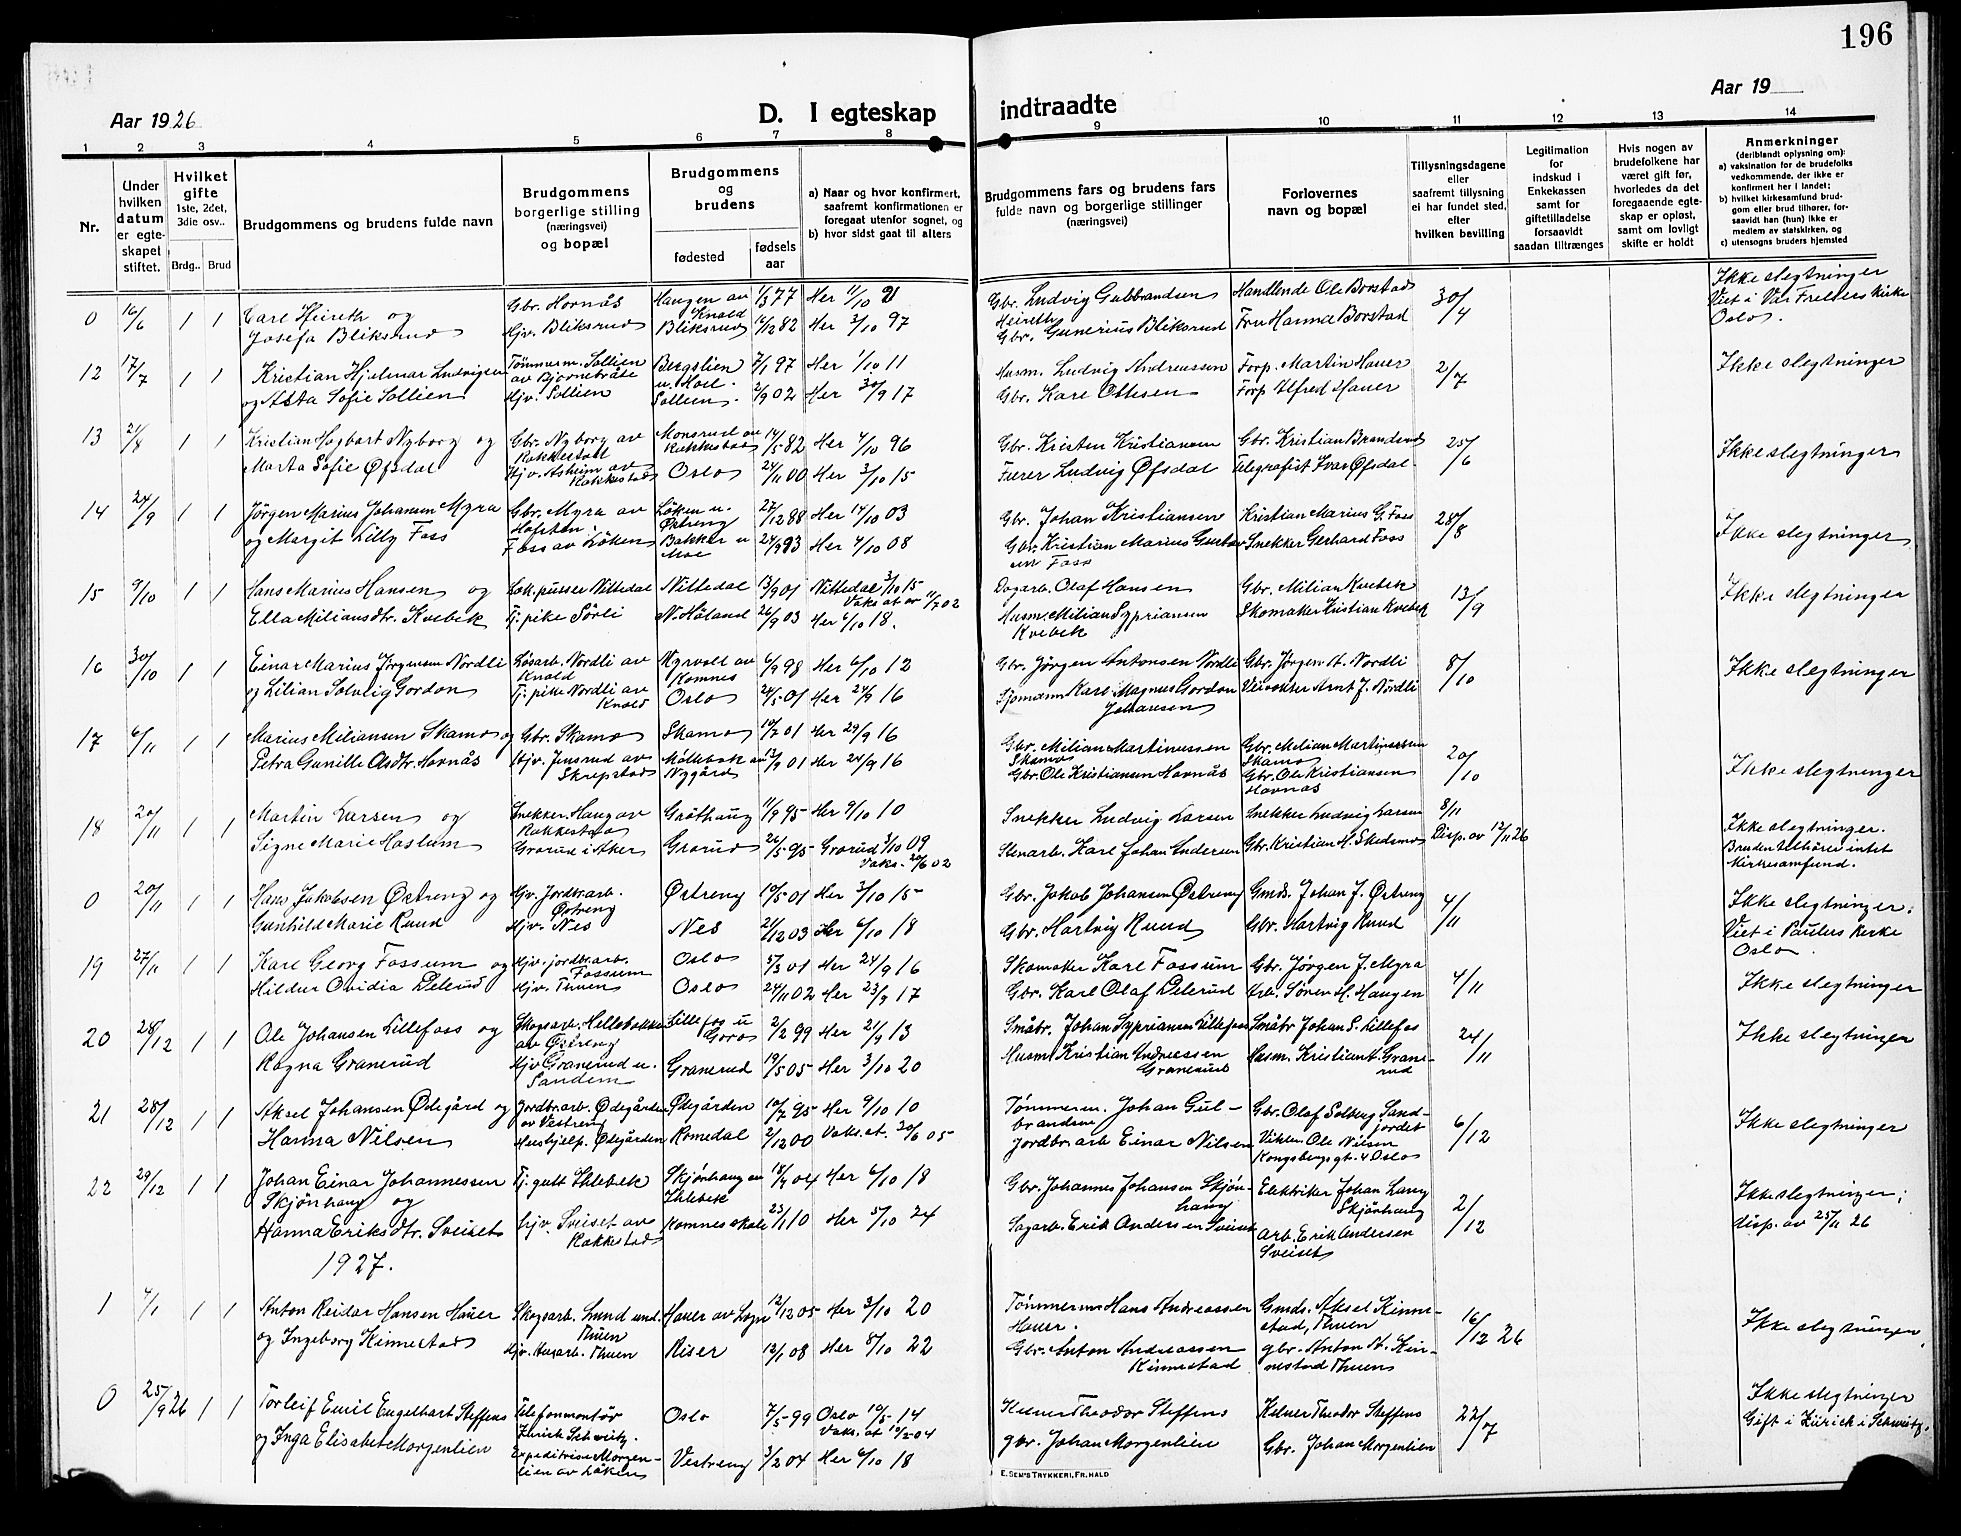 196
Aar 1926
D. I egteskap indtraadte
Aar 19
1 2 3 4 5 6 7 8 9 10 11 12 13 14
Nr.
Under hvilken datum er egteskapet stiftet.
Hvilket gifte 1ste, 2det, 3die osv..
Brdg.. Brud
Brudgommens og brudens fulde navn
Brudgommens borgerlige stilling (næringsvei) og bopæl
Brudgommens og brudens
fødested
fødsels aar
a) Naar og hvor konfirmert, saafremt konfirmationen er foregaat utenfor sognet, og
b) hvor sidst gaat til alters
Brudgommens fars og brudens fars fulde navn og borgerlige stillinger (næringsvei)
Forlovernes navn og bopæl
Tillysningsdagene eller saafremt tillysning ei har fundet sted, efter hvilken bevilling
Legitimation for indskud i Enkekassen samt for giftetilladelse forsaavidt saadan tiltrænges
Hvis nogen av brudefolkene har været gift før, hvorledes da det foregaaende egteskap er opløst, samt om lovligt skifte er holdt
Anmerkninger
(deriblandt oplysning om):
a) vaksination for de brudefolks vedkommende, der ikke er konfirmert her i landet;
b) hvilket kirkesamfund brudgom eller brud tilhører, forsaavidt han (hun) ikke er medlem av statskirken, og
c) utensogns bruders hjemsted
0 16/6 1 1 Carl Heireth og Gbr. Hornås Haugen av Knold 1/3 77 Her 11/10 91 Gbr. Ludvig Gulbrandsen Heireth Handlende Ole Borstad 30/4 Ikke slegtninger
Josefa Bliksrud Hjv. Bliksrud Bliksrud 16/12 82 Her 3/10 97 Gbr. Gunerius Bliksrud Fru Hanna Borstad Viet i Vår Frelsers kirke Oslo.
12 17/7 1 1 Kristian Hjalmar Ludvigsen Tømmerm. Sollien av Bjørnebråte Bergslien u. Hoel. 7/1 97 Her 1/10 11 Husm. Ludvig Andreassen Forp. Martin Hauer 2/7 Ikke slegtninger
og Asta Sofie Sollien Hjv. Sollien Sollien. 2/9 02 Her 30/9 17 Gbr. Karl Ottesen Forp. Alfred Hauer
13 21/8 1 1 Kristian Hagbart Nyborg og Gbr. Nyborg av Rakkestad Monsrud av Rakkestad 14/5 82 Her 4/10 96 Gbr. Kristen Kristiansen Gbr. Kristian Brandsrud 25/6 Ikke slegtninger
Marta Sofie Øfsdal Hjv. Asheim av Rakkestad Oslo 24/11 00 Her 3/10 15 Furer Ludvig Øfsdal Telegrafist Ivar Øfsdal
14 24/9 1 1 Jørgen Marius Johansen Myra Gbr. Myra av Hofsten. Løken u. Østreng 27/12 88 Her 14/10 03 Gbr. Johan Kristiansen Kristian Marius G. Foss 28/8 Ikke slegtninger
og Margit Lilly Foss Foss av Løken Bakker u Moe 24/9 93 Her 4/10 08 Gbr. Kristian Marius Gustavsen Foss Snekker Gerhard Foss
15 9/10 1 1 Hans Marius Hansen og Lok.pusser Nittedal Nittedal 13/9 01 Nittedal 3/10 15 Vaks.at av 11/7 02 Dagarb. Olaf Hansen Gbr. Milian Kvebek 13/9 Ikke slegtninger
Ella Miliansdtr. Kvebek Tj.pike Sørli N. Høland 26/9 03 Her 6/10 18. Husm. Milian Syprianssen Kvebek Skomaker Kristian Kvebek
16 30/10 1 1 Einar Marius Jørgensen Nordli Løsarb. Nordli av Knold Myrvold av Komnes 6/9 98 Her 6/10 12 Gbr. Jørgen Antonsen Nordli Gbr. Jørgen A. Nordli 8/10 Ikke slegtninger
og Lilian Solveig Gordon Tj.pike Nordli av Knold Oslo 24/5 01 Her 24/9 16 Sjømann Karl Magnus Gordon Johansen Veivokter Arnt J. Nordli
17 6/11 1 1 Marius Miliansen Skamo og Gbr. Skamo Skamo 10/7 01 Her 29/9 16 Gbr. Milian Martinussen Skamo Gbr. Milian Martinussen Skamo 20/10 Ikke slegtninger
Petra Gunille Olsdtr. Hornås Hjv. Jensrud av Skrepstad Møllebak av Nygård 13/9 01 Her 24/9 16 Gbr. Ole Kristiansen Hornås Gbr. Ole Kristiansen Hornås
18 20/11 1 1 Martin Larsen og Snekker Haug av Rakkestad Gråthaug 11/9 95 Her 9/10 10 Snekker Ludvig Larsen Snekker Ludvig Larsen 8/11 Ikke slegtninger.
Signe Marie Haslum Grorud i Aker Grorud 26/5 95 Grorud 3/10 09 Vaks. 20/6 02 Stenarb. Karl Johan Andersen Gbr. Kristian H. Skedsmo Disp. av 12/11 26 Bruden tilhører intet kirkesamfund.
0 20/11 1 1 Hans Jakobsen Østreng og Hjv. Jordbr.arb. Østreng Østreng 10/5 01 Her 3/10 15 Gbr. Jakob Johansen Østreng Gmds. Johan J. Østreng 4/11 Ikke slegtninger.
Gunhild Marie Ruud Hjv. Nes Nes 21/12 03 Her 6/10 18 Gbr. Hartvig Ruud Gbr. Hartvig Ruud Viet i Paulus kirke Oslo.
19 27/11 1 1 Karl Georg Fossum og Hjv. jordbr.arb. Fossum Oslo 5/3 01 Her 24/9 16 Skomaker Karl Fossum Gbr. Jørgen J. Myra 4/11 Ikke slegtninger
Hildur Ovidia Delerud Hjv. Thuen Oslo 24/11 02 Her 23/9 17 Gbr. Karl Olaf Delerud Arb. Søren M. Haugen
20 28/12 1 1 Ole Johansen Lillefoss og Skogsarb. Hellebakke av Østreng Lillefos u Goro 2/2 99 Her 21/9 13 Småbr. Johan Syprianssen Lillefoss Småbr Johan S. Lillefos 24/11 Ikke slegtninger
Ragna Granerud Hjv Granerud u. Sandem Granerud 19/5 05 Her 3/10 20 Husm. Kristian Andreassen Granerud Husm. Kristian A. Granerud
21 28/12 1 1 Aksel Johansen Ødegård og Jordbr.arb. Ødegården av Vestreng Ødegården 10/7 95 Her 9/10 10 Tømmerm. Johan Gulbrandsen Gbr. Olaf Solberg Sandjordet 6/12 Ikke slegtninger
Hanna Nilsen Hushjelp. Ødegården Romedal 2/12 00 Vaks.at. 20/6 05 Jordbr.arb Einar Nilsen Viktm. Ole Nilsen Kongsbergs gt. 4 Oslo
22 29/12 1 1 Johan Einar Johannessen Skjønhaug og Tj.gutt Ihlebek Skjønhaug av Ihlebek 18/9 04 Her 6/10 18 Gbr. Johannes Johansen Skjønhaug Elektriker Johan Lang Skjønhaug 2/12 Ikke slegtninger;
Hanna Eriksdtr. Sveiset hjv. Sveiset av Rakkestad Komnes skole 23/1 10 Her 5/10 24 Sagarb. Erik Andersen Sveiset Arb. Erik Andersen Sveiset disp. av 25/11 26
1927.
1 4/1 1 1 Anton Reidar Hansen Hauer Skogsarb. Lund und. Thuen Hauer av Løgn 12/12 05 Her 3/10 20 Tømmerm Hans Andreassen Hauer. Gmds. Aksel Kinnestad, Thuen 16/12 26 Ikke slegtninger
og Ingeborg Kinnestad Hjv. Husarb. Thuen Riser 12/1 08 Her 8/10 22 Gbr. Anton Andreassen Kinnestad gbr. Anton A. Kinnestad Thuen
0 25/9 26 1 1 Torleif Emil Engelhart Steffens Telefonmontør Zurich Schweitz. Oslo 7/5 99 Oslo 10/5 14 Vaks. at 10/2 04 Kelner Theodor Steffens Kelner Theodor Steffens 22/7 Ikke slegtninger
og Inga Elisabet Morgenlien Expeditrise Morgenlien av Løken Vestreng 3/2 04 Her 6/10 18 gbr. Johan Morgenlien Gbr. Johan Morgenlien Gift i Zürich i Schweitz.
E. SEM'S TRYKKERI, FR.HALD